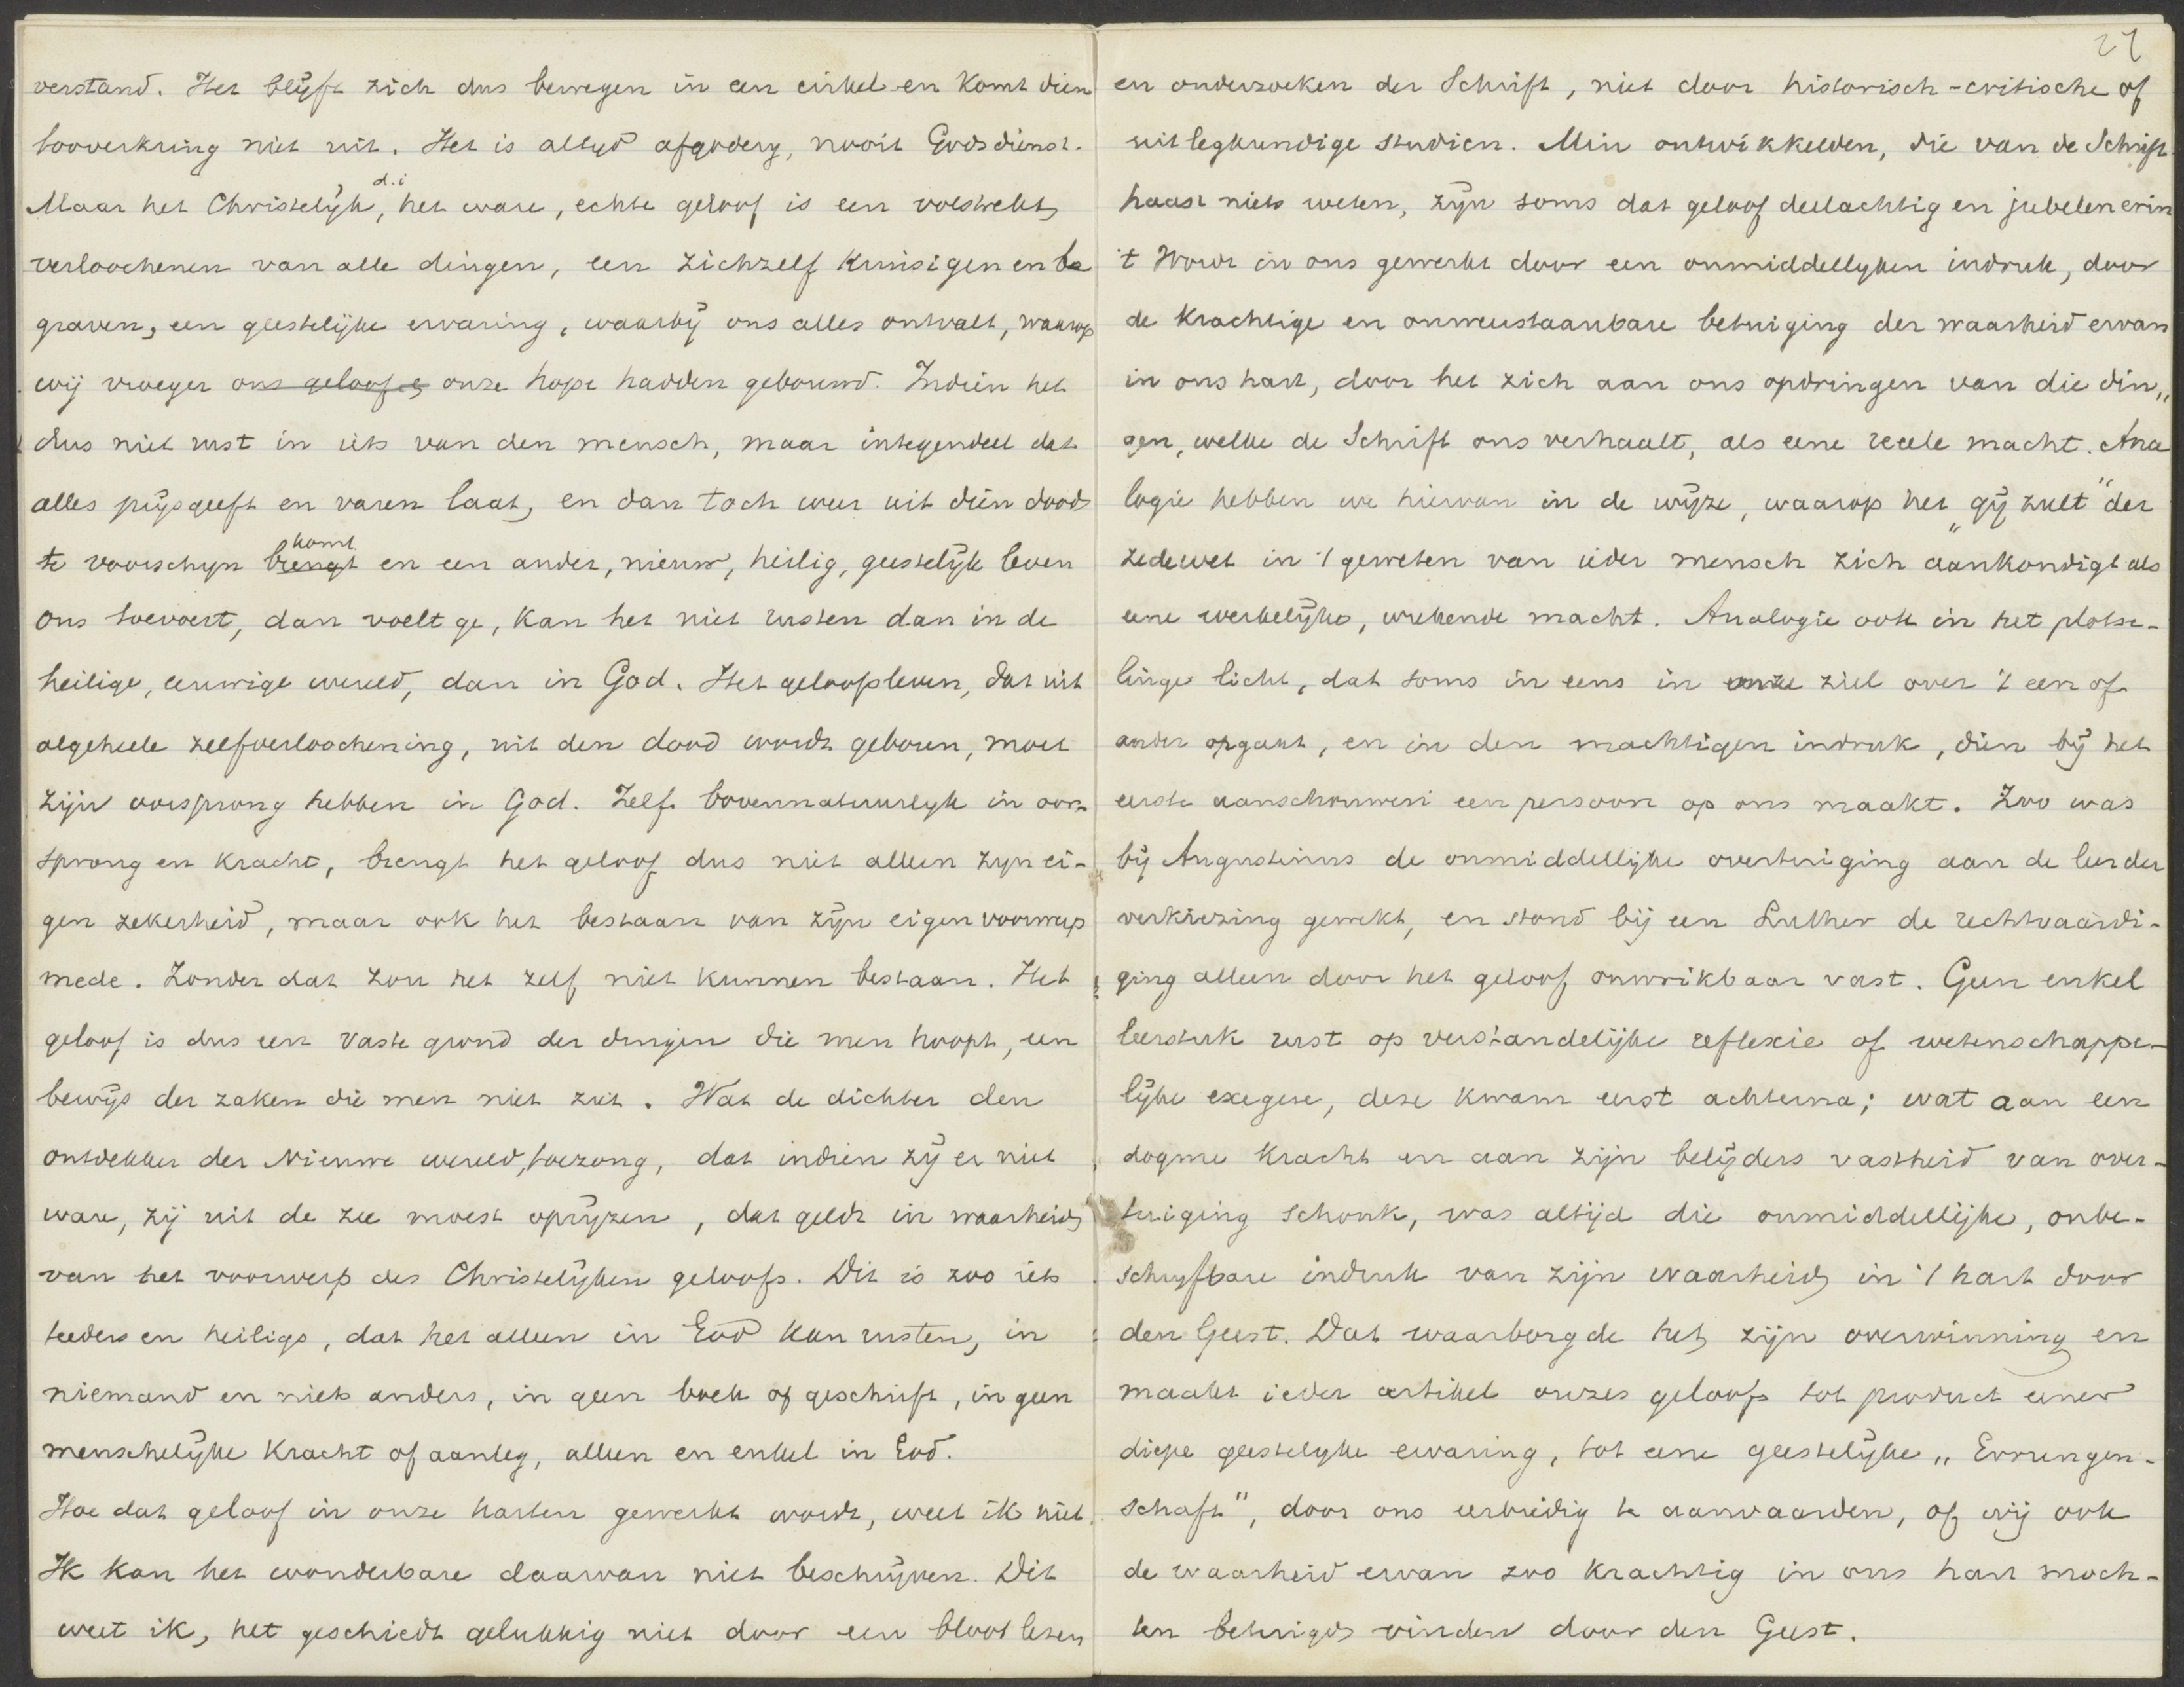 verstand. Het blijft zich dus bewegen in een cirkel en komt dien
tooverkring niet uit. Het is altyd afgodery, nooit Godsdienst.
Maar het Christelijk, d.i het ware, echte geloof is een volstrekt
verloochenen van alle dingen, een zichzelf kruisigen en be
graven, een geestelijke ervaring, waarbij ons alles ontvalt, waarop
wij vroeger ons geloof e onze hope hadden gebouwd. Indien het
dus niet rust in iets van den mensch, maar integendeel dat
alles prijsgeeft en varen laat, en dan toch weer uit dien dood
te voorschyn brengt komt en een ander, nieuw, heilig, geestelijk leven
ons toevoert, dan voelt ge, kan het niet rusten dan in de
heilige, eeuwige wereld, dan in God. Het geloofsleven, dat uit
algeheele zelfverloochening, uit den dood wordt geboren, moet
zijn oorsprong hebben in God. Zelf bovennatuurlyk in oor-
sprong en kracht, brengt het geloof dus niet alleen zyn ei-
gen zekerheid, maar ook het bestaan van zijn eigen voorwerp
mede. Zonder dat zou het zelf niet kunnen bestaan. Het
geloof is dus een vaste grond der dingen die men hoopt, een
bewijs der zaken die men niet ziet. Wat de dichter den
ontdekker der Nieuwe wereld, toezong, dat indien zij er niet
ware, zij uit de zee moest oprijzen, dat geldt in waarheid
van het voorwerp des Christelijken geloofs. Dit is zoo iets
teeders en heiligs, dat het alleen in God kan rusten, in
niemand en niets anders, in geen boek of geschrift, in geen
menschelijke kracht of aanleg, alleen en enkel in God.
Hoe dat geloof in onze harten gewerkt wordt, weet ik niet.
Ik kan het wonderbare daarvan niet beschrijven. Dit
weet ik, het geschiedt gelukkig niet door een bloot lezen
27
en onderzoeken der Schrift, niet door historisch-critische of
uitlegkundige studien. Min ontwikkelden, die van de Schrift
haast niets weten, zijn soms dat geloof deelachtig en jubelen erin
't Wordt in ons gewerkt door een onmiddellyken indruk, door
de krachtige en onweerstaanbare betuiging der waarheid ervan
in ons hart, door het zich aan ons opdringen van die din„
gen, welke de Schrift ons verhaalt, als eene reeele macht. Ana
logie hebben we hiervan in de wijze, waarop het „gij zult" der
zedewet in 't geweten van ieder mensch zich aankondigt als
eene werkelijke, wrekende macht. Analogie ook in het plotse-
linge licht, dat soms in eens in onze ziel over 't een of
ander opgaat, en in den machtigen indruk, dien bij het
eerste aanschouwen een persoon op ons maakt. Zoo was
bij Augustinus de onmiddellijke overtuiging aan de leer der
verkiezing gewekt, en stond bij een Luther de rechtvaardi-
ging alleen door het geloof onwrikbaar vast. Geen enkel
leerstuk rust op verstandelijke reflexie of wetenschappe-
lijke exegese, deze kwam eerst achterna; wat aan een
dogme kracht en aan zijn belijders vastheid van over-
tuiging schonk, was altijd die onmiddellijke, onbe-
schryfbare indruk van zijn waarheid in 't hart door
den Geest. Dat waarborgde het zijn overwinning en
maakt ieder artikel onzes geloofs tot product eener
diepe geestelyke ervaring, tot eene geestelijke „Errungen-
schaft", door ons eerbiedig te aanvaarden, of wij ook
de waarheid ervan zoo krachtig in ons hart moch-
ten betuigd vinden door den Geest.